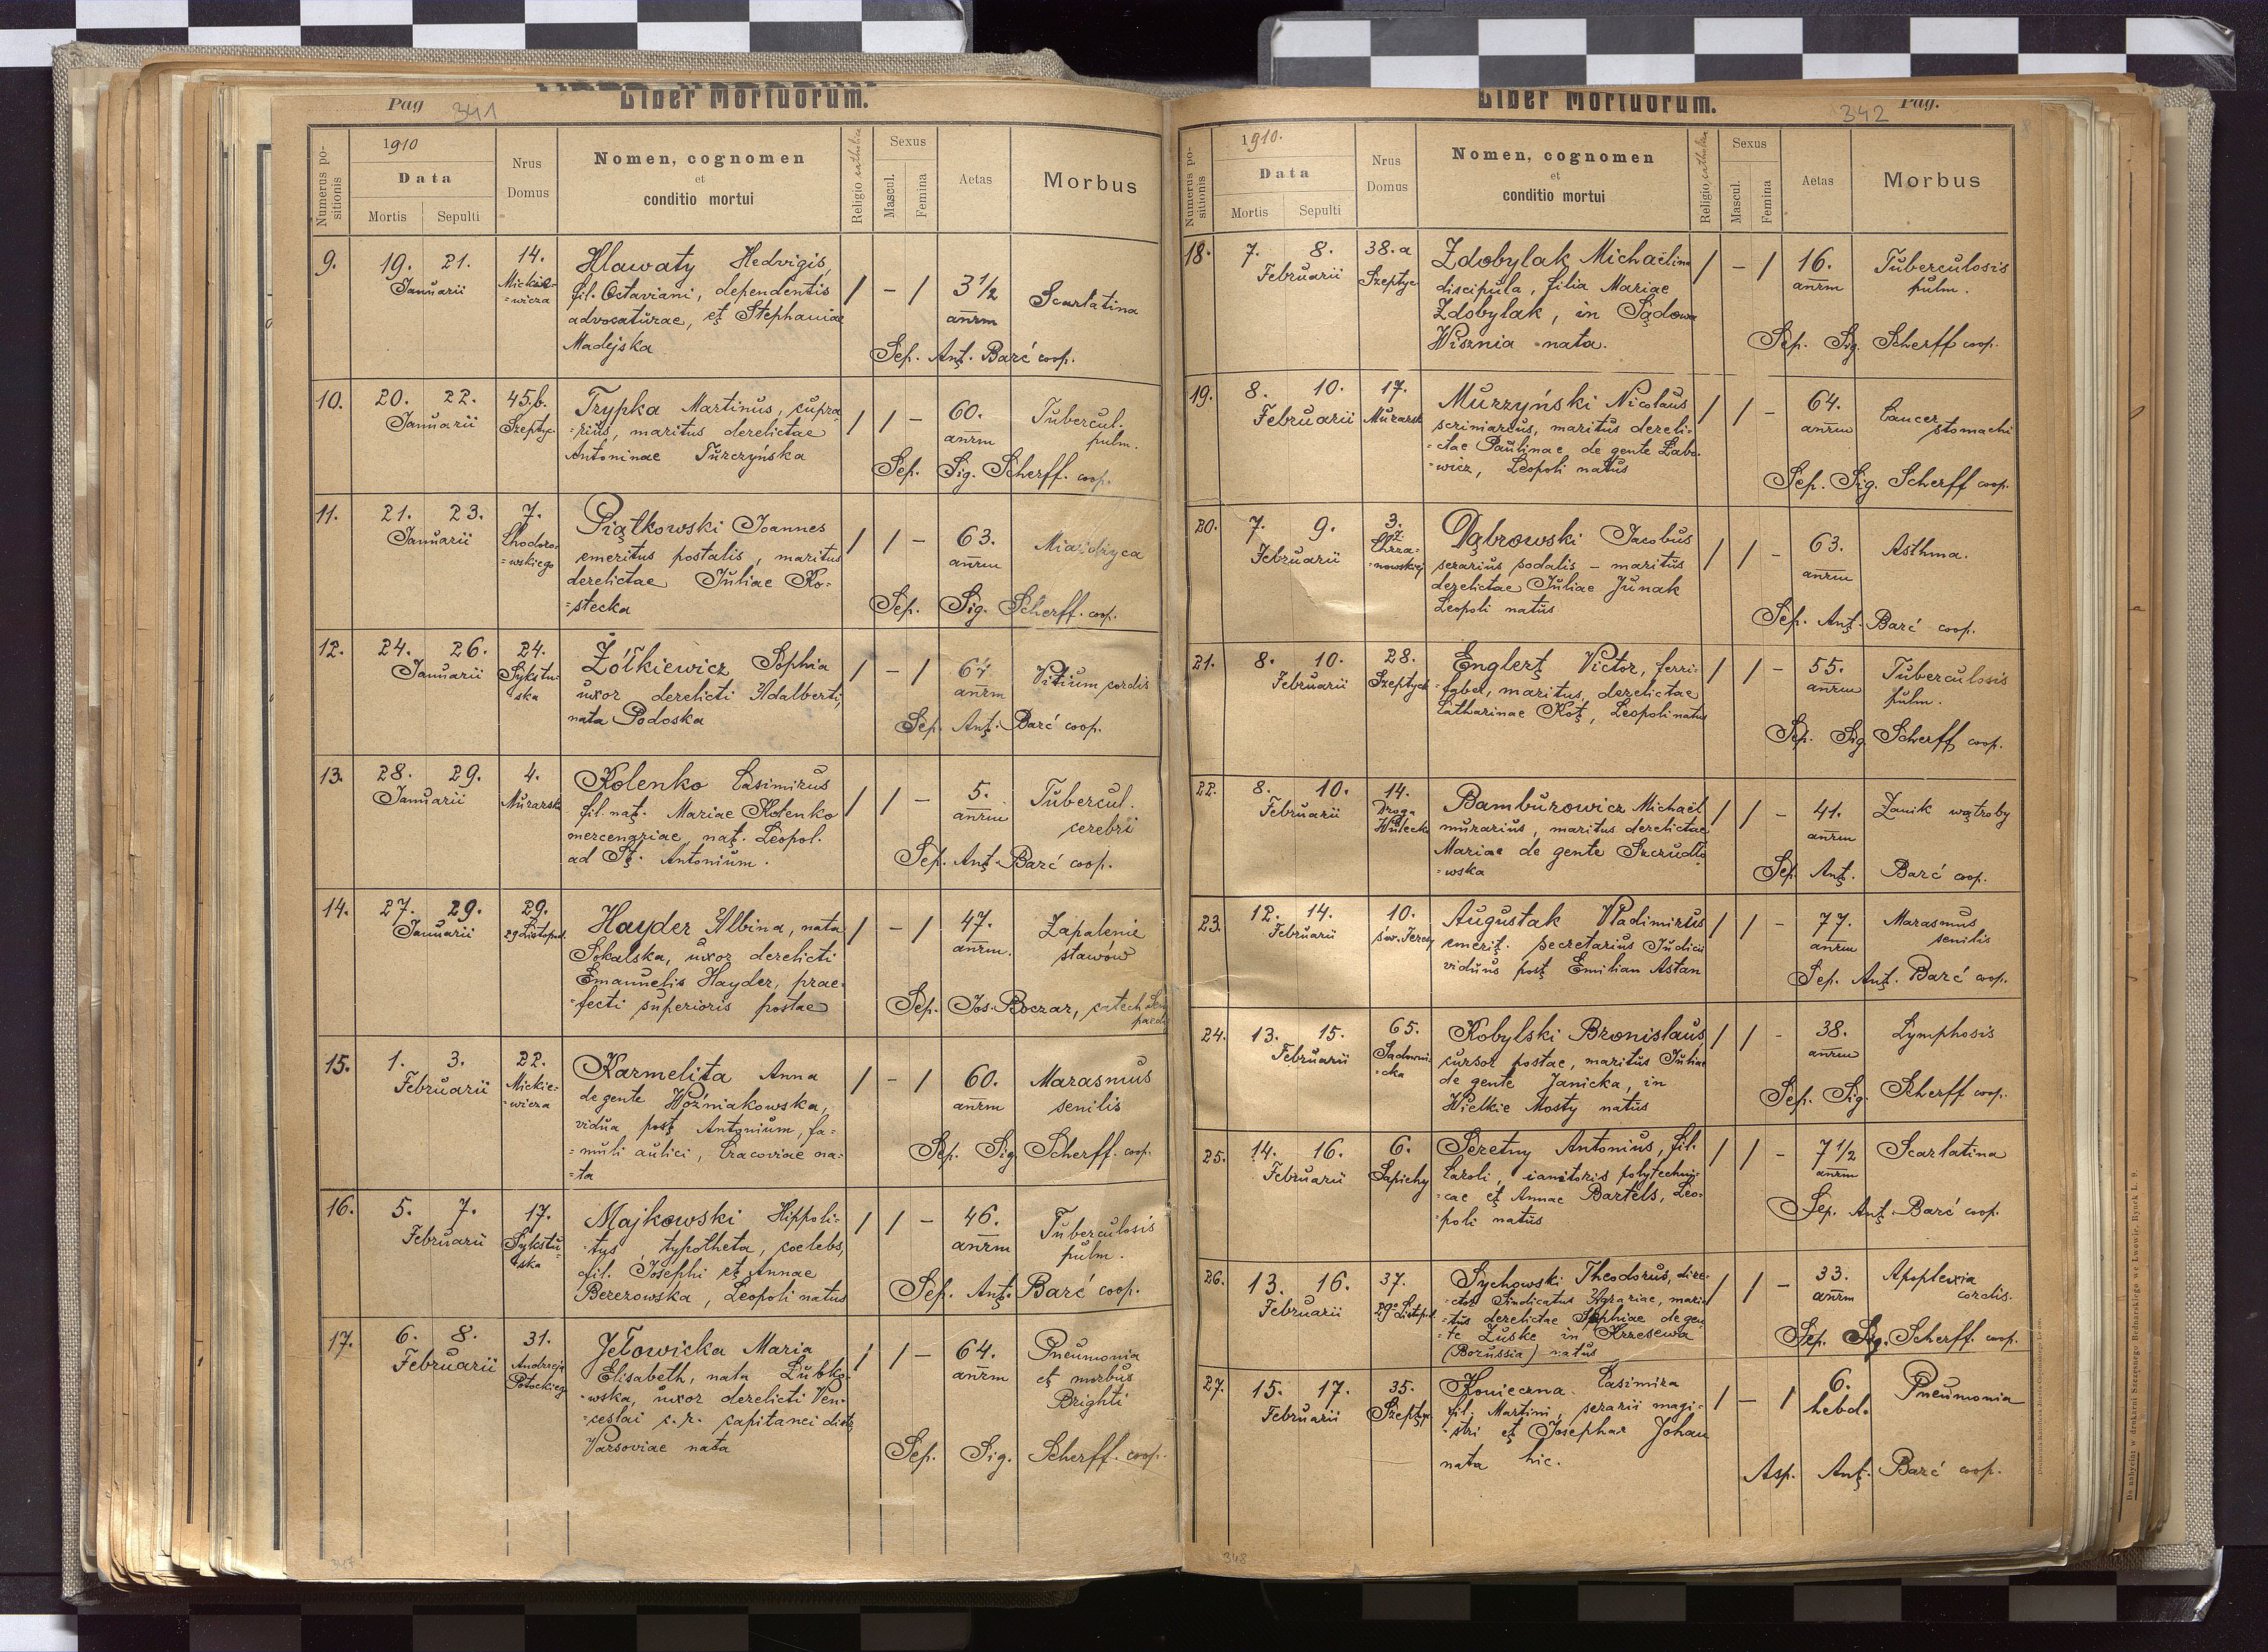 Pag 341
Liber Mortuorum.
Numerus positionis
1910
Data
Mortis Sepulti
Nrus Domus
Nomen, cognomen
et
conditio mortui
Religio catholica
Sexus
Mascul.
Femina
Aetas
Morbus
9. 19. 21. 14. Hlawaty Hedvigis, / - / 3 1/2 Scarlatina
Januarii Mickie- fil. Octaviani, dependentis anrm
=wicza advocaturae, et Stephaniae
Madejska Sep. Ant. Barć coop.
10. 20. 22. 45.b. Trypka Martinus, cupra / / - 60. Tubercul.
Januarii Szeptyc. =rius, maritus derelictae anrm pulm.
Antoninae Turczyńska Sep. Sig. Scherff. coop.
11. 21. 23. 7. Piątkowski Joannes / / - 63. Miażdżyca
Januarii Chodoro- emeritus postalis, maritus anrm
=wskiego derelictae Juliae Ko=
=stecka Sep. Sig. Scherff. coop.
12. 24. 26. 24. Żółkiewicz Sophia / - / 64 Vitium cordis
Januarii Sykstu- uxor derelicti Adalberti, anrm
ska nata Podoska Sep. Ant. Barć coop.
13. 28. 29. 4. Kolenko Casimirus / / - 5. Tubercul.
Januarii Murarsk fil. nat. Mariae Kolenko anrm cerebri
mercenariae, nat. Leopol.
ad St. Antonium. Sep. Ant. Barć coop.
14. 27. 29. 29. Hayder Albina, nata / - / 47. Zapalenie
Januarii 29 Listopad. Sokalska, uxor derelicti anrm. stawów
Emanuelis Hayder, prae=
=fecti superioris postae Sep. Jos. Boczar, catech.
15. 1. 3. 22. Karmelita Anna / - / 60. Marasmus
Februarii Mickie- de gente Woźniakowska, anrm senilis
=wicza vidua post Antonium, fa=
=muli aulici, Cracoviae na- Sep. Sig. Scherff. coop.
=ta
16. 5. 7. 17. Majkowski Hippoli= / / - 46. Tuberculosis
Februarii Sykstu- =tus, typotheta, coelebs, anrm pulm.
ska fil. Josephi et Annae
Berezowska, Leopoli natus Sep. Ant. Barć coop.
17. 6. 8. 31. Jełowicka Maria / / - 64. Pneumonia
Februarii Andrzeja Elisabeth, nata Lubko- anrm et morbus
Potockieg. =wska, uxor derelicti Ven= Brighti
=ceslai c.r. capitanei distr.
Varsoviae nata Sep. Sig. Scherff. coop.
347
Liber Mortuorum.
342 Pag.
Numerus positionis
1910.
Data
Mortis Sepulti
Nrus Domus
Nomen, cognomen
et
conditio mortui
Religio catholica
Sexus
Mascul.
Femina
Aetas
Morbus
18. 7. 8. 38.a Zdobylak Michaëlina / - / 16. Tuberculosis
Februarii Szeptyc. discipula, filia Mariae anrm pulm.
Zdobylak, in Sądowa
Wisznia nata. Sep. Sig. Scherff coop.
19. 8. 10. 17. Murzyński Nicolaus / / - 64. Cancer
Februarii Murarsk scriniarius, maritus dereli= anrm stomachi
=ctae Paulinae de gente Łabo-
=wicz, Leopoli natus Sep. Sig. Scherff coop.
20. 7. 9. 3. Dąbrowski Jacobus / / - 63. Asthma.
Februarii Chrza= serarius sodalis - maritus anrm
=nowskiej derelictae Juliae Junak
Leopoli natus Sep. Ant. Barć coop.
21. 8. 10. 28. Englert Victor, ferri- / / - 55. Tuberculosis
Februarii Szeptyck =faber, maritus derelictae anrm pulm.
Catharinae Kot, Leopoli natus
Sep. Sig. Scherff coop.
22. 8. 10. 14. Bamburowicz Michaël / / - 41. Zanik wątroby
Februarii Droga murarius, maritus derelictae anrm
Wuleck Mariae de gente Szczudło
=wska Sep. Ant. Barć coop.
23. 12. 14. 10. Augustak Vladimirus / / - 77. Marasmus
Februarii św. Teresy emerit. secretarius Judicii anrm senilis
viduus post Emilian Astan Sep. Ant. Barć coop.
24. 13. 15. 65. Kobylski Bronislaus, / / - 38. Lymphosis
Februarii Sadowni- cursor postae, maritus Juliae anrm
=cka de gente Janicka, in
Wielkie Mosty natus Sep. Sig. Scherff coop.
25. 14. 16. 6. Seretny Antonius, fil. / / - 7 1/2 Scarlatina
Februarii Sapiehy Caroli, ianitoris polytechni= anrm
=cae et Annae Bartels, Leo=
=poli natus Sep. Ant. Barć coop.
26. 13. 16. 37. Sychowski Theodorus, dire- / / - 33. Apoplexia
Februarii 29º Listopad. =ctor Sindicatus Agrariae, mari= anrm cordis.
=tus derelictae Sophiae de gen=
=te Zuske in Krzesewa Sep. Sig. Scherff. coop.
(Borussia) natus
27. 15. 17. 35. Konieczna Casimira / - / 6. Pneumonia
Februarii Szeptyc. fil. Martini, serarii magi= hebd.
=stri et Josephae Johan
nata hic. Asp. Ant. Barć coop.
348
Do nabycia w drukarni Szczęsnego Bednarskiego we Lwowie, Rynek L. 9.